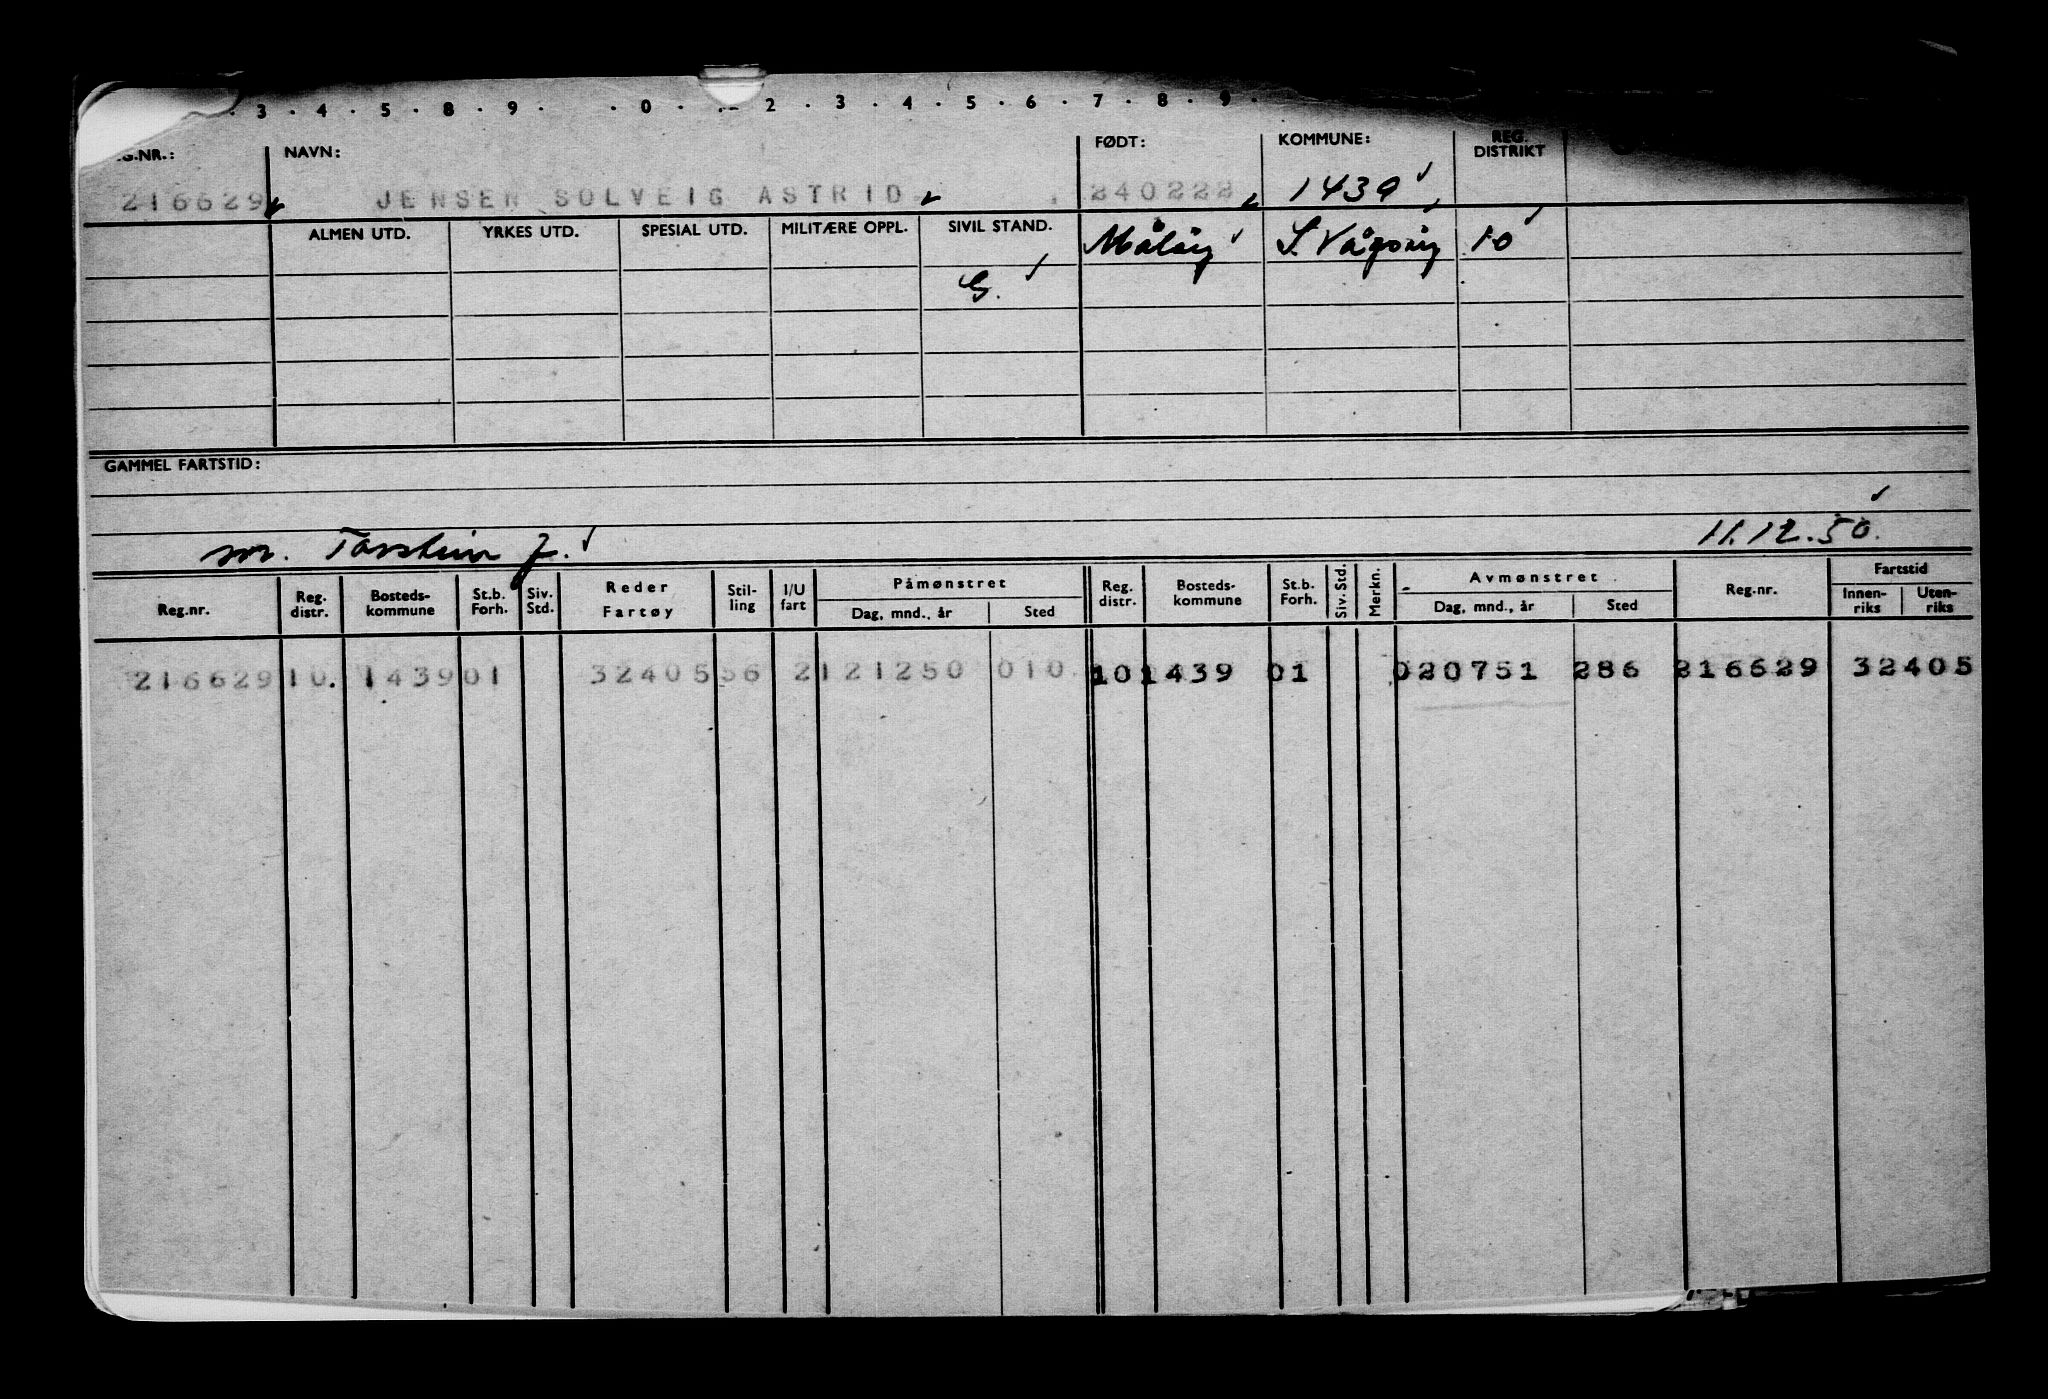 3 . 4 . 5 . 8 . 9 . . 0 . . 2 . 3 . 4 . 5 . 6 . 7 . 8 . 9 .
G.NR.: NAVN: FØDT: KOMMUNE: REG. DISTRIKT
216629 JENSEN SOLVEIG ASTRID 240222 1439
ALMEN UTD. YRKES UTD. SPESIAL UTD. MILITÆRE OPPL. SIVIL STAND. Måløy S. Vågsøy 10
G.
GAMMEL FARTSTID:
mor. Torstein J. 11.12.50.
Reg.nr. Reg. distr. Bosteds-kommune St.b. Forh. Siv. Std. Reder Fartøy Stil-ling I/U fart Påmønstret Dag, mnd., år Sted Reg. distr. Bosteds-kommune St.b. Forh. Siv. Std. Merkn. Avmønstret Dag, mnd., år Sted Reg.nr. Fartstid Innen-riks Uten-riks
216629 10. 1439 01 32405 56 2 121250 010 10 1439 01 020751 286 216629 32405